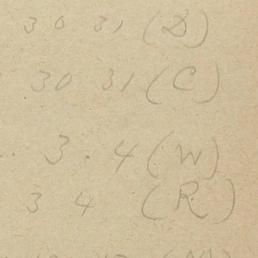 30 31 (D)
30 31 (C)
3. 4 (W)
3 4 (R)